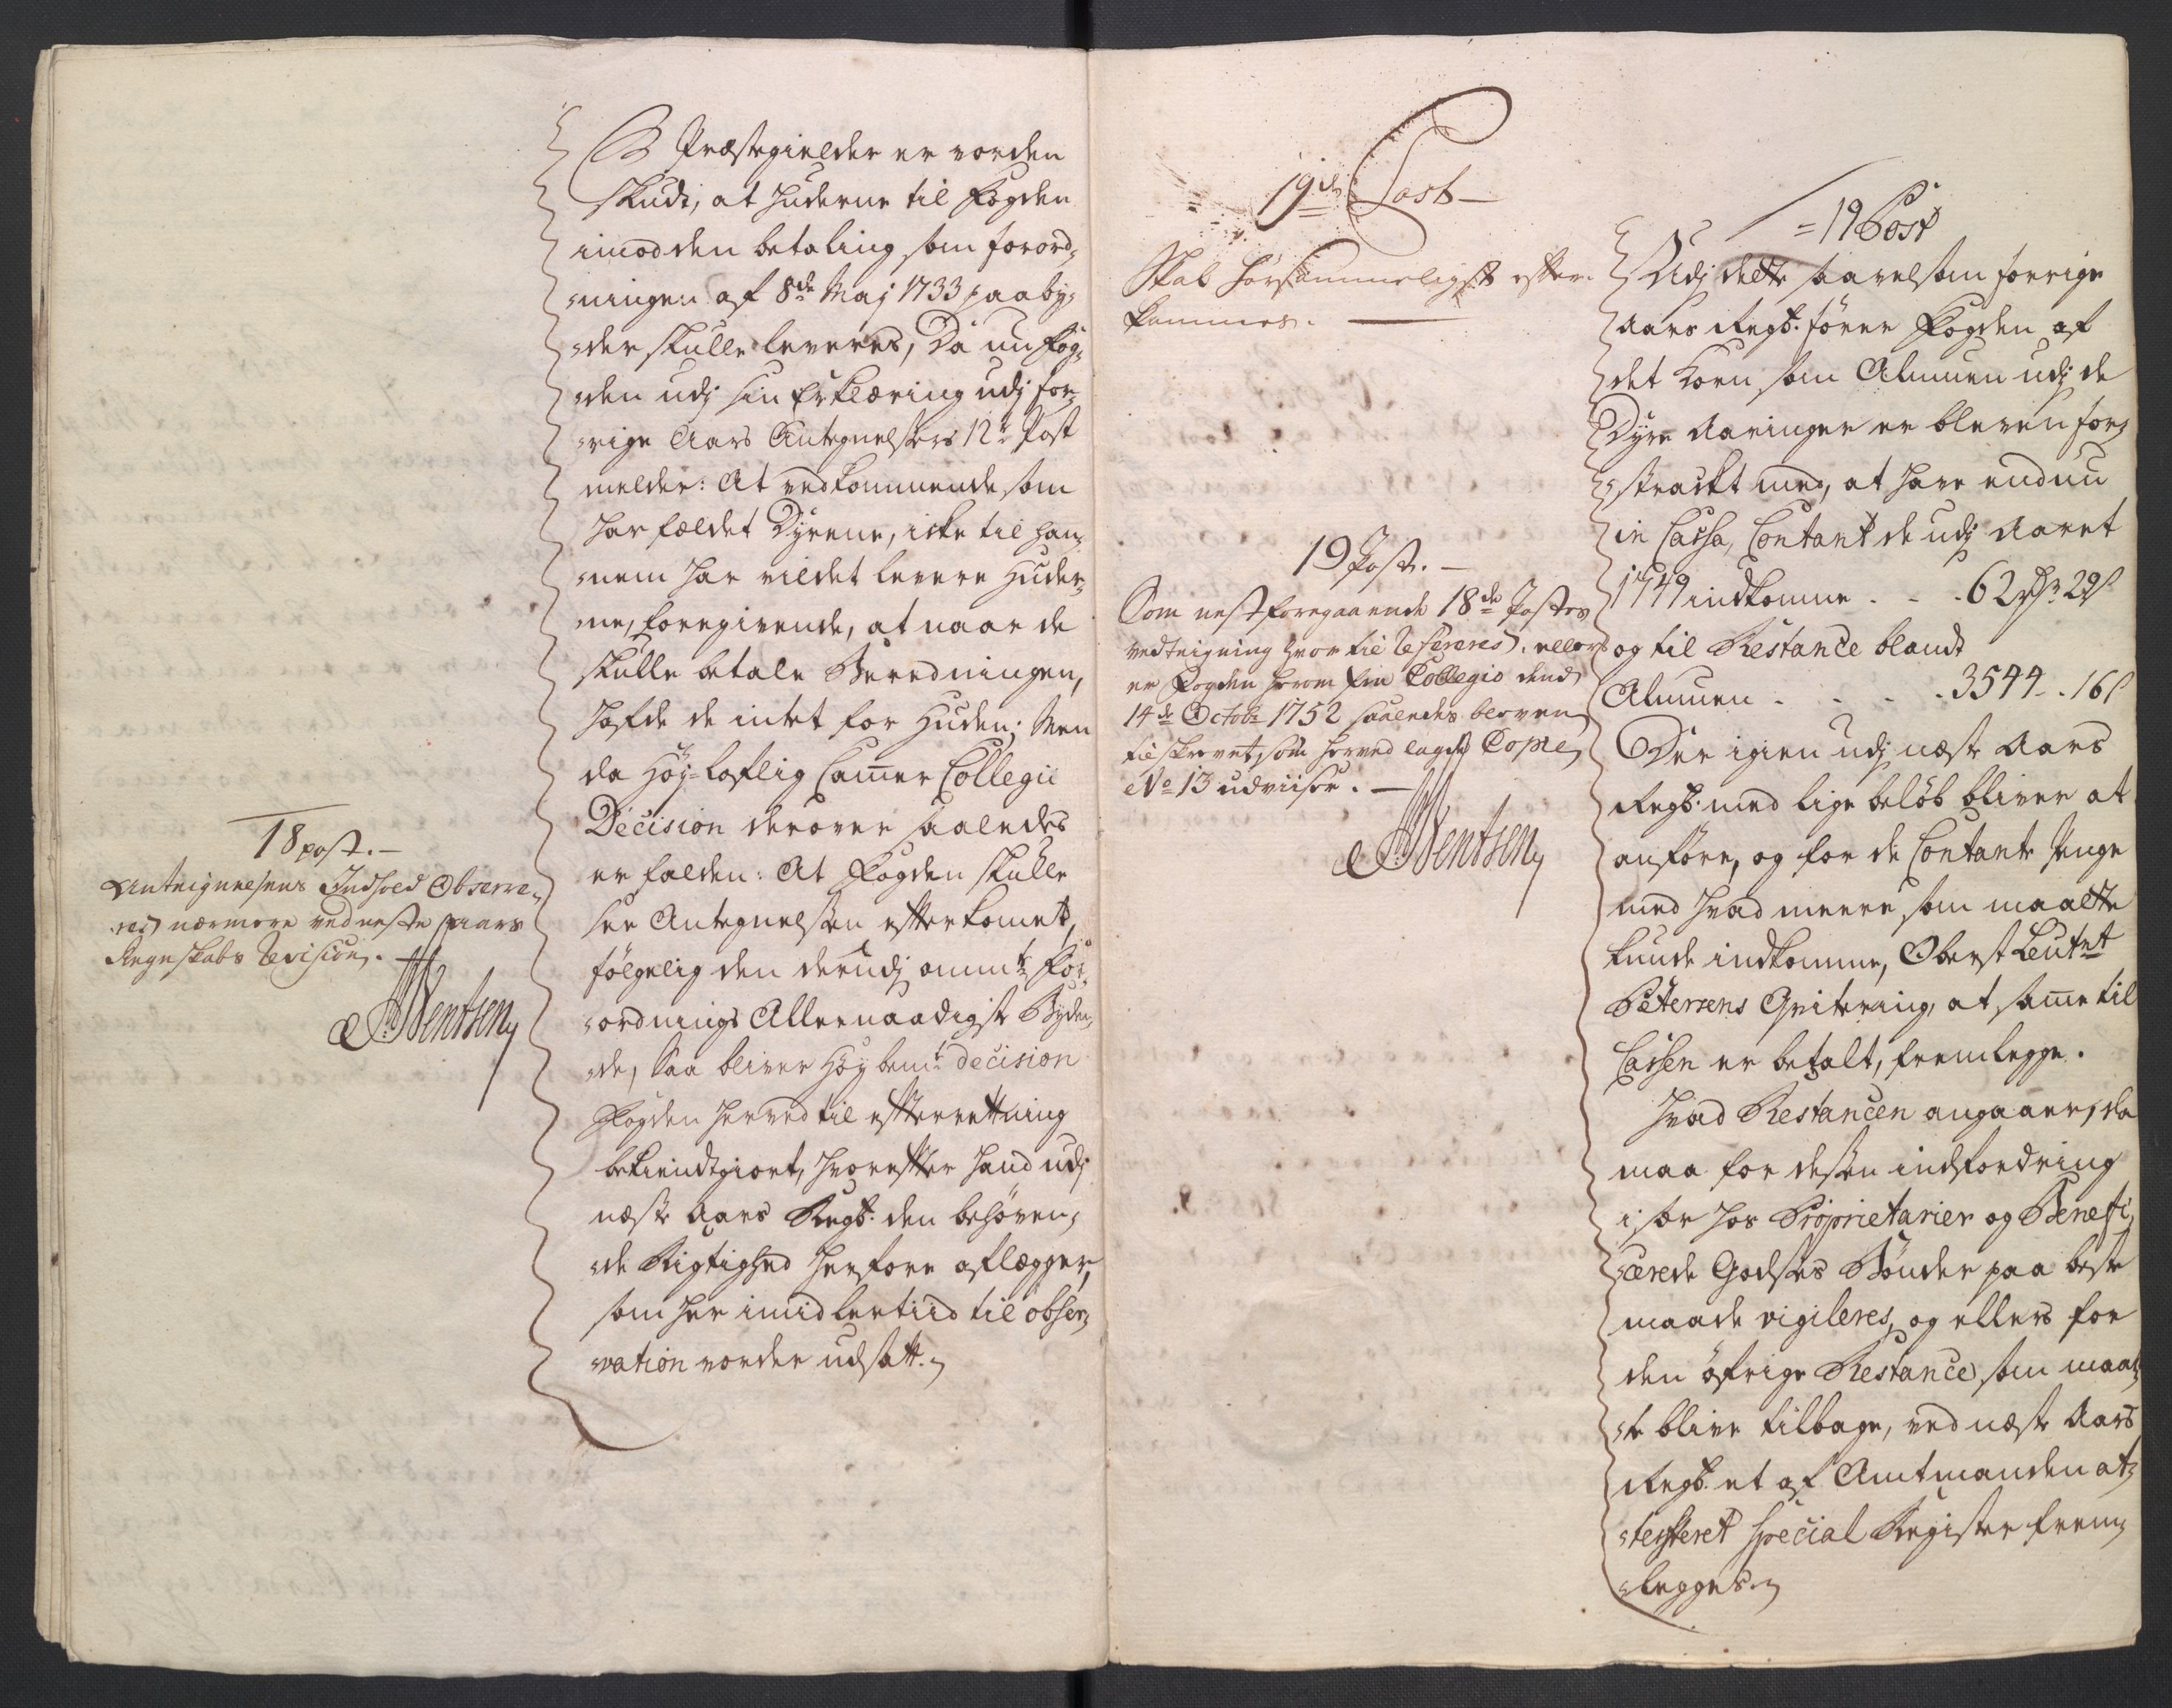 Præstegielder er vorden
skudt, at Huderne til Fogden
imod den betaling som forord„
„ningen af 8de Maj 1733 paaby„
„der skulle leveres, Da nu Fog„
„den udj sin Erklæring udj for„
„rige Aars Antegnelsers 12te Post
melder: At vedkommende som
har fældet Dyrene, icke til han„
„nem har vildet levere Huder„
„ne, foregivende, at naar de
skulle betale Beredningen,
hafde de intet for Huden; Men
da Høj-loflig Cammer Collegii
Decision derover saaledes
er falden: At Fogden skulle
see Antegnelsen efterkomet,
følgelig den derudj ommte For„
„ordnings Allernaadigste Byden„
„de, Saa bliver Høybemte decision
Fogden herved til efterrettning
bekiendtgiort, hvorefter hand udj
næste Aars Regsb. den behøven„
„de Rigtighed herfore aflægger,
som her imidlertiid til obser„
„vation vorder udsatt.
18 post.
Anteignelsens Indhold Observe„
„res nærmere ved neste Aars
Regnskabs Revision.
Wentsen
19de Post
Skal hørsommeligst efter„
kommes.
19 Post.
Som nest foregaaende 18de Postes
vedteigning hvortil Refereres, ellers
er Fogden herom fra Collegio dend
14de Octobr 1752 saaledes bleven
tilskrevet, som herved lagde Copie
No 13 udviiser.
Wentsen
19 Post
Udj dette saavelsom forrige
Aars Regsb. fører Fogden af
det Korn som Almuen udj de
Dyre Aaringer er bleven for„
„strackt med, at have endnu
in Cassa, Contant de udj Aaret
1749 indkomne . . 62 rdr 29 s
og til Restance blandt
Almuen . . . 3544 . 16 s
Der igien udj næste Aars
Regsb. med lige beløb bliver at
anføre, og for de Contante Penge
med hvad meere som maatte
kunde indkomme, Oberst Leutnt
Petersens Qvitering, at samme til
Cassen er betalt, fremlegge.
Hvad Restancen angaaer, da
maa for desen indfordring
i sær hos Proprietarier og Benefi„
„cerede Godses Bønder paa beste
maade vigileres, og ellers for
den øfrige Restance, som maat„
„te blive tilbage, ved næste Aars
Regsb. et af Amtmanden at„
„testeret Special Register frem„
„legges.